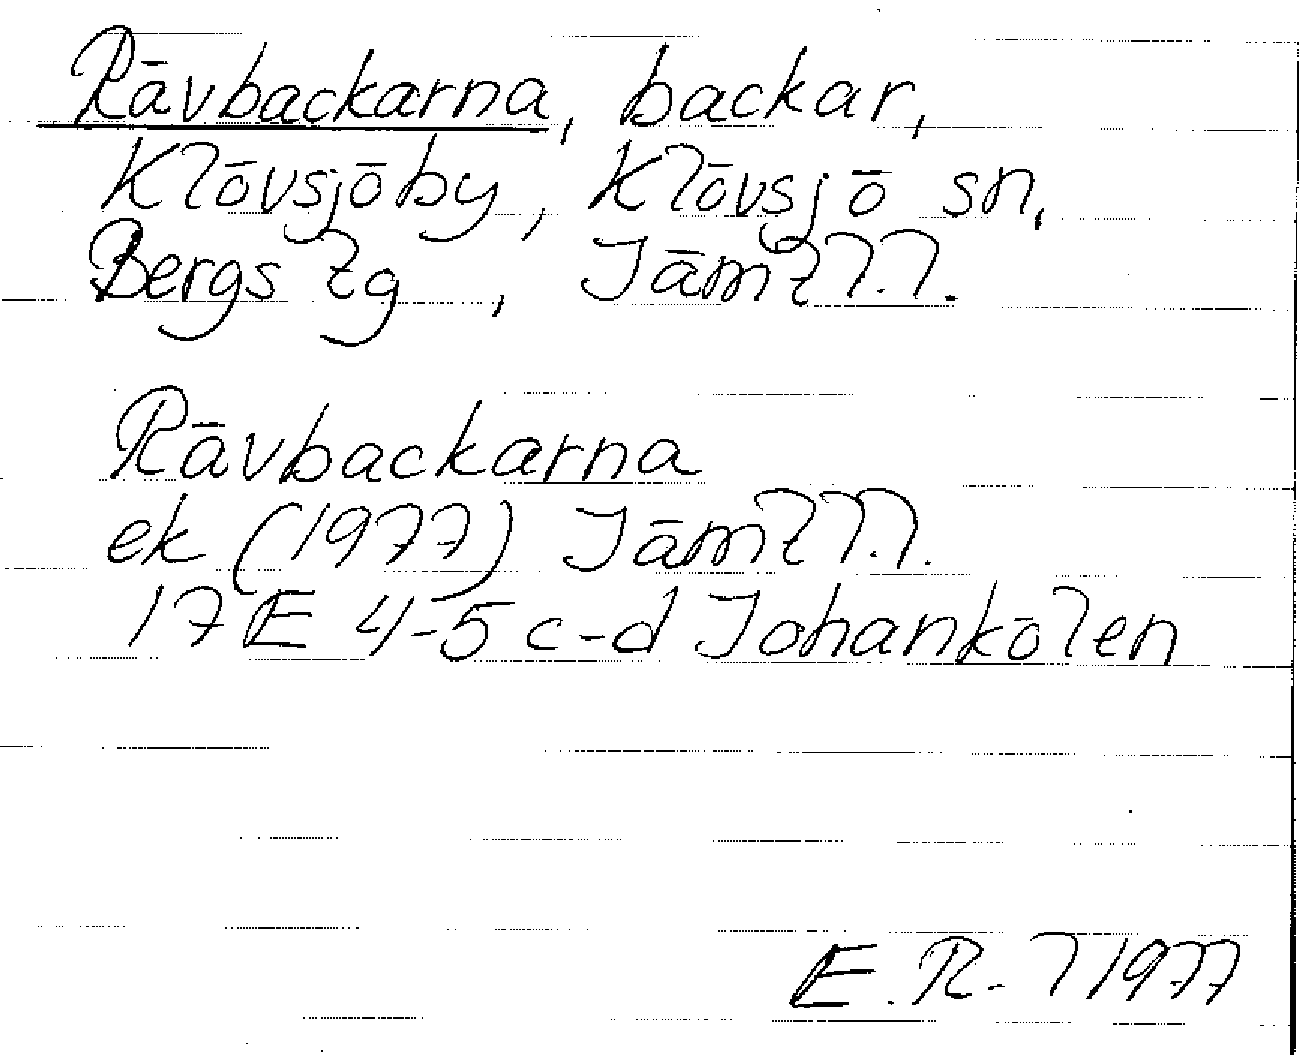 Rävbackarna, backar,
Klövsjöby, Klövsjö sn,
Bergs tg, Jämtl.l.
Rävbackarna
ek (1977) Jämtl.l.
17E 4-5 c-d Johankölen
E.R-l 1977